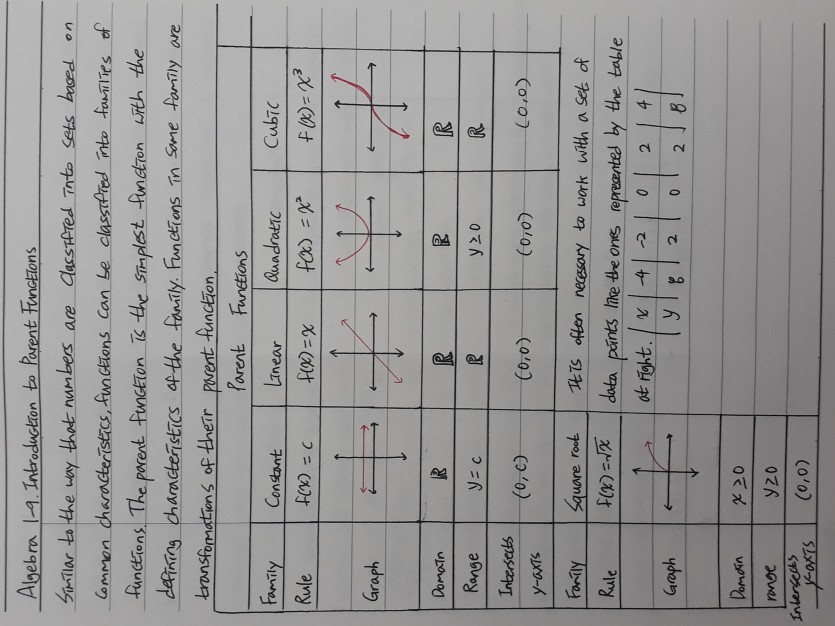 Algebra 1-9. Introduction to Parent Functions
Similar to the way that numbers are classified into sets based on
common characteristics, functions can be classified into families of
functions. The parent function is the simplest function with the
defining characteristics of the family. Functions in same family are
transformations of their parent function.
Parent Functions
Family Constant Linear Quadratic Cubic
Rule f(x) = c f(x) = x f(x) = x² f(x) = x³
Graph
Domain ℝ ℝ ℝ ℝ
Range y = c ℝ y ≥ 0 ℝ
Intersects
y-axis (0,c) (0,0) (0,0) (0,0)
Family Square root
Rule f(x) = √x
Graph
Domain x ≥ 0
range y ≥ 0
Intersects
y-axis (0,0)
It is often necessary to work with a set of
data points like the ones represented by the table
at right. | x | -4 | -2 | 0 | 2 | 4 |
| y | 8 | 2 | 0 | 2 | 8 |